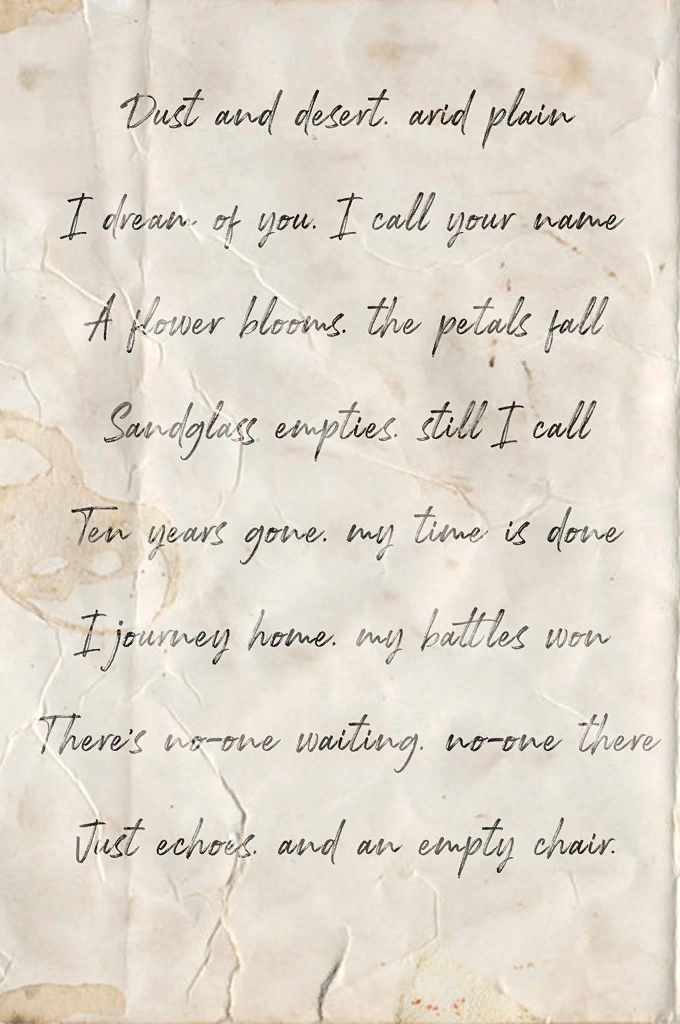 Dust and desert. arid plain
I dream of you. I call your name
A flower blooms. the petals fall
Sandglass empties. still I call
Ten years gone. my time is done
I journey home. my battles won
There's no-one waiting. no-one there
Just echoes. and an empty chair.